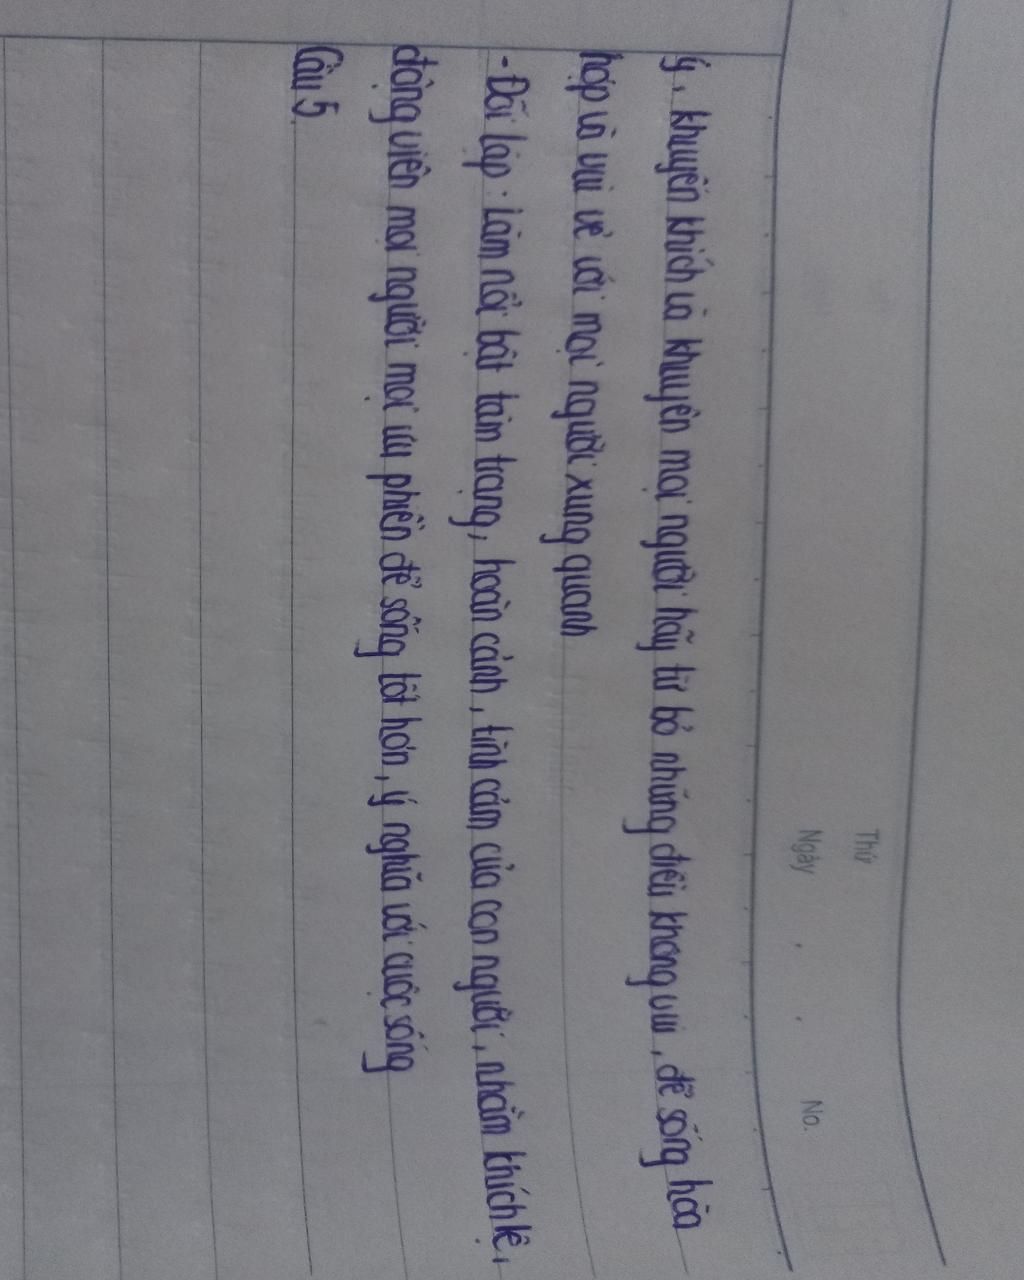 Thứ
Ngày . . No.
ý, khuyến khích và khuyên mọi người hãy từ bỏ những điều không vui, để sống hòa
hợp và vui vẻ với mọi người xung quanh
- Đối lập: Làm nổi bật tâm trạng, hoàn cảnh, tình cảm của con người, nhằm khích lệ,
động viên mọi người mọi ưu phiền để sống tốt hơn, ý nghĩa với cuộc sống
Câu 5